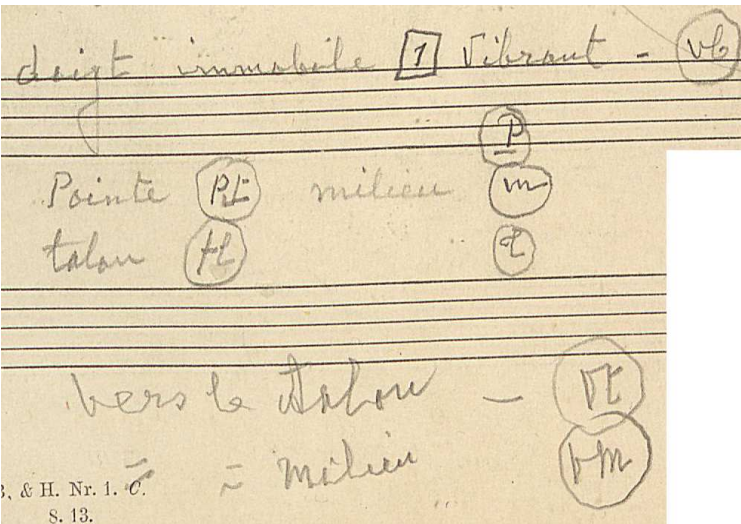 doigt immobile 1 Vibrant - vb
P
Pointe Pt milieu m
talon tl t
vers le talon - Vt
" " milieu Vm
B. & H. Nr. 1. C.
S. 13.